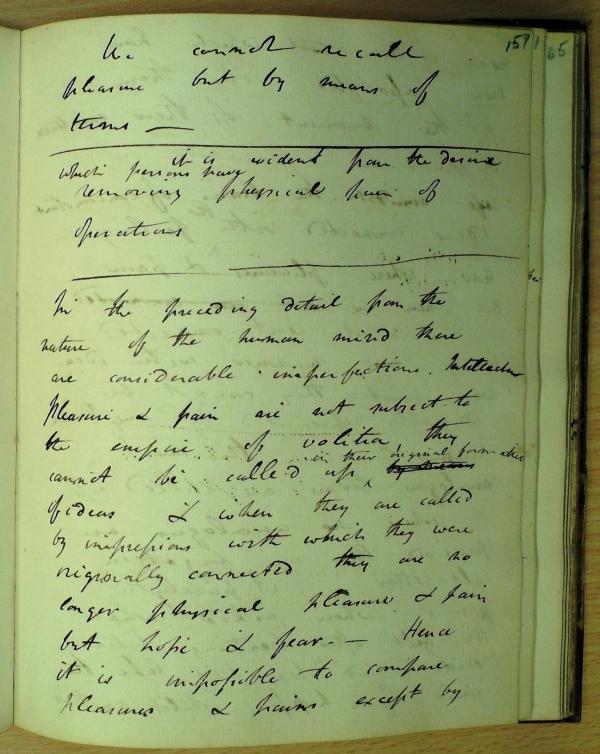 157
65
We cannot recall
pleasure but by means of
terms —
it is evident from the desire
which persons have
removing physical pain of
operations
In the preceding detail from the
nature of the human mind there
are considerable imperfections.
pleasure & pain are not subject to
the empire of volition they
in their original formation
cannot be called up by
of ideas & when they are called
by impressions with which they were
originally connected they are no
longer physical pleasure & pain
but hope & fear. — Hence
it is impossible to compare
pleasures & pains except by